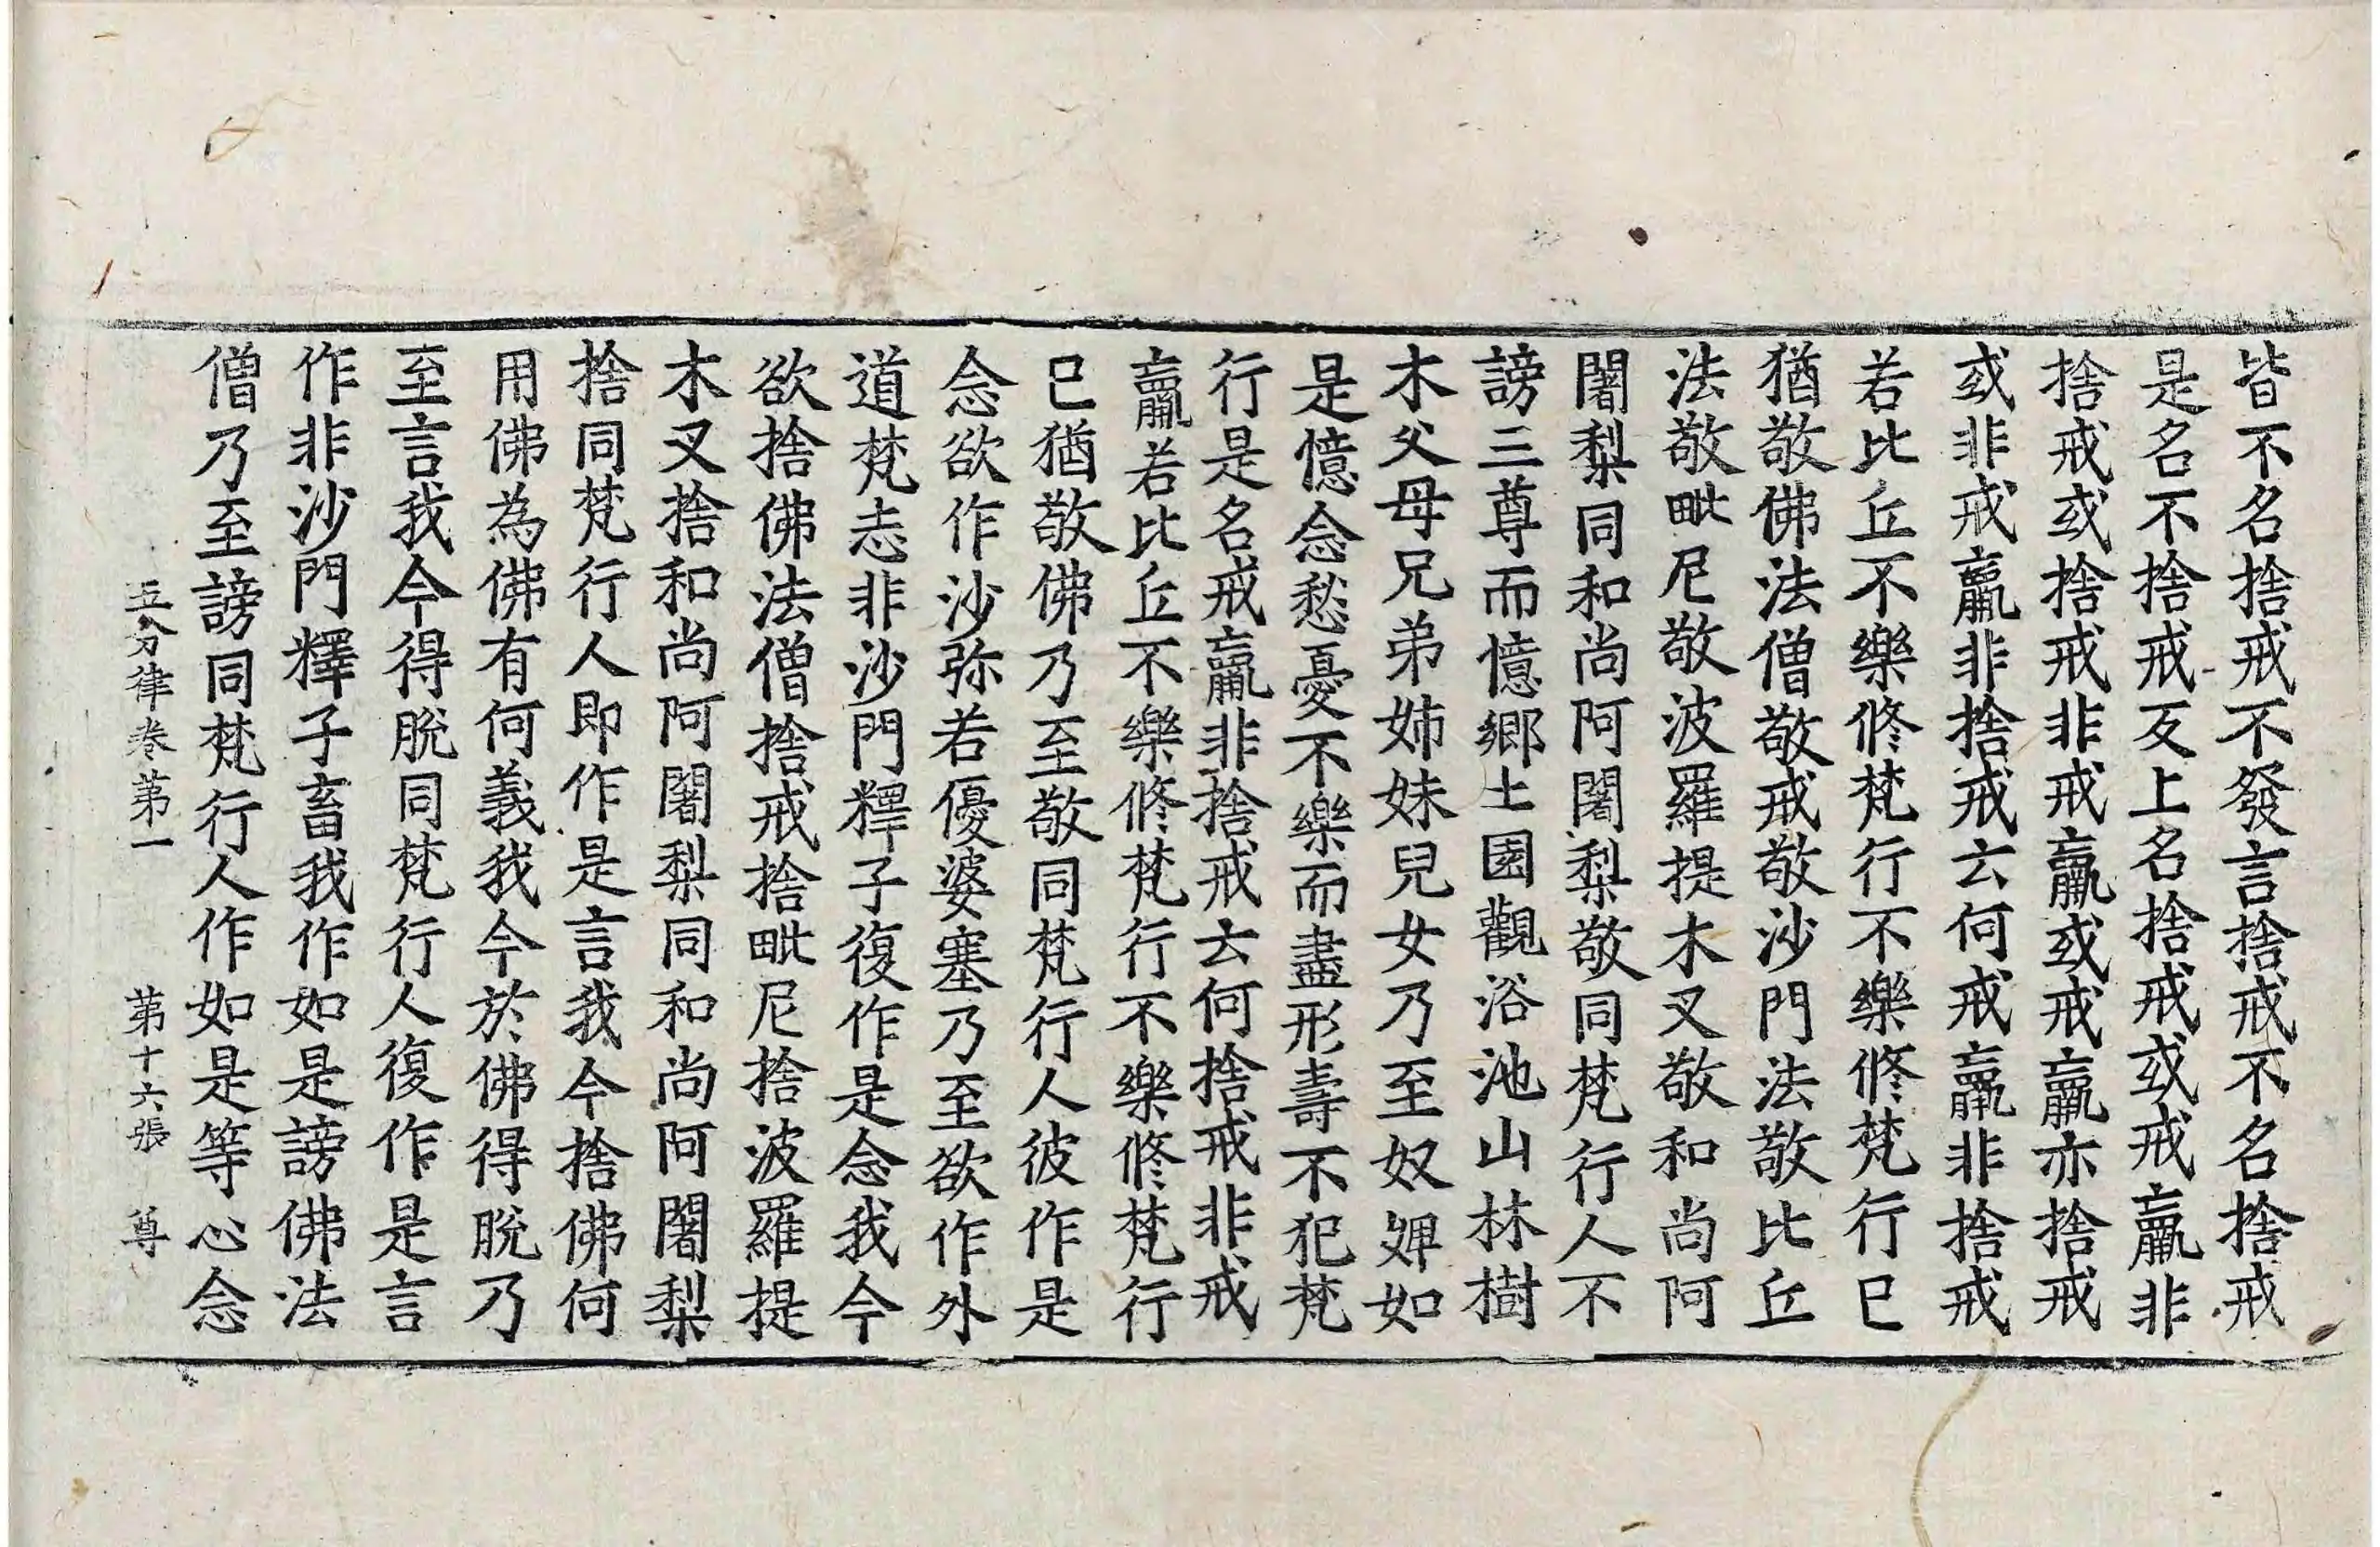 皆不名捨戒不發言捨戒不名捨戒
是名不捨戒反上名捨戒或戒羸非
捨戒或捨戒非戒羸或戒羸亦捨戒
或非戒羸非捨戒云何戒羸非捨戒
若比丘不樂修梵行不樂修梵行已
猶敬佛法僧敬戒敬沙門法敬比丘
法敬毗尼敬波羅提木叉敬和尚阿
闍梨同和尚阿闍梨敬同梵行人不
謗三尊而憶鄉土園觀浴池山林樹
木父母兄弟姉妹兒女乃至奴婢如
是憶念愁憂不樂而盡形壽不犯梵
行是名戒羸非捨戒云何捨戒非戒
羸若比丘不樂修梵行不樂修梵行
已猶敬佛乃至敬同梵行人彼作是
念欲作沙弥若優婆塞乃至欲作外
道梵志非沙門釋子復作是念我今
欲捨佛法僧捨戒捨毗尼捨波羅提
木叉捨和尚阿闍梨同和尚阿闍梨
捨同梵行人即作是言我今捨佛何
用佛為佛有何義我今於佛得脫乃
至言我今得脫同梵行人復作是言
作非沙門釋子畜我作如是謗佛法
僧乃至謗同梵行人作如是等心念
五分律卷第一 第十六張 尊